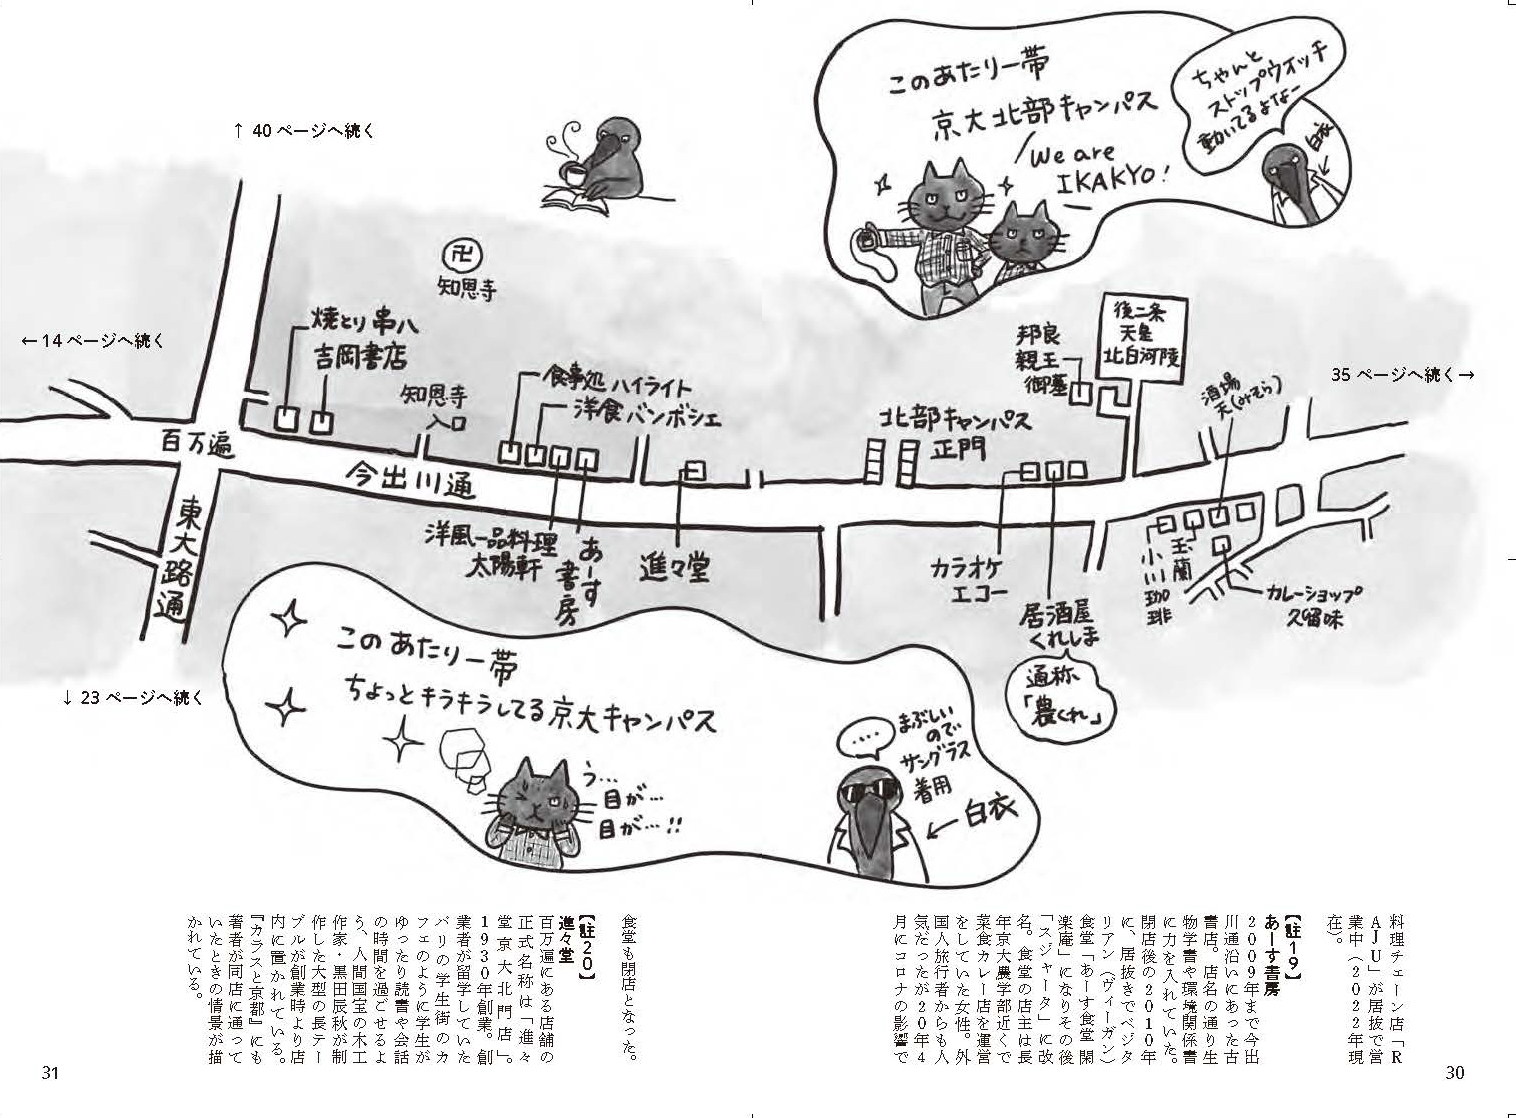 ↑ 40 ページへ続く
このあたり一帯
京大北部キャンパス
We are
IKAKYO!
ちゃんと
ストップウォッチ
動いてるよなー
白衣
卍
知恩寺
←14 ページへ続く
焼とり 串八
吉岡書店
知恩寺
入口
食事処 ハイライト
洋食 バンボシェ
北部キャンパス
正門
邦良
親王
御墓
後二条
天皇
北白河陵
35 ページへ続く→
酒場
天(みそら)
百万遍
今出川通
東大路通
洋風一品料理
太陽軒
あーす
書房
進々堂
カラオケ
エコー
居酒屋
くれしま
通称
「農くれ」
小川珈琲
玉蘭
カレーショップ
久留味
↓ 23 ページへ続く
このあたり一帯
ちょっとキラキラしてる京大キャンパス
う…
目が…
目が…!!
‥‥
まぶしい
ので
サングラス
着用
白衣
料理チェーン店「R
AJU」が居抜で営
業中(2022年現
在)。
【註19】
あーす書房
2009年まで今出
川通沿いにあった古
書店。店名の通り生
物学書や環境関係書
に力を入れていた。
閉店後の2010年
に、居抜きでベジタ
リアン(ヴィーガン)
食堂「あーす食堂 閑
楽庵」になりその後
「スジャータ」に改
名。食堂の店主は長
年京大農学部近くで
菜食カレー店を運営
をしていた女性。外
国人旅行者からも人
気だったが20年4
月にコロナの影響で
食堂も閉店となった。
【註20】
進々堂
百万遍にある店舗の
正式名称は「進々
堂 京大北門店」。
1930年創業。創
業者が留学していた
パリの学生街のカ
フェのように学生が
ゆったり読書や会話
の時間を過ごせるよ
う、人間国宝の木工
作家・黒田辰秋が制
作した大型の長テー
ブルが創業時より店
内に置かれている。
『カラスと京都』にも
著者が同店に通って
いたときの情景が描
かれている。
31
30